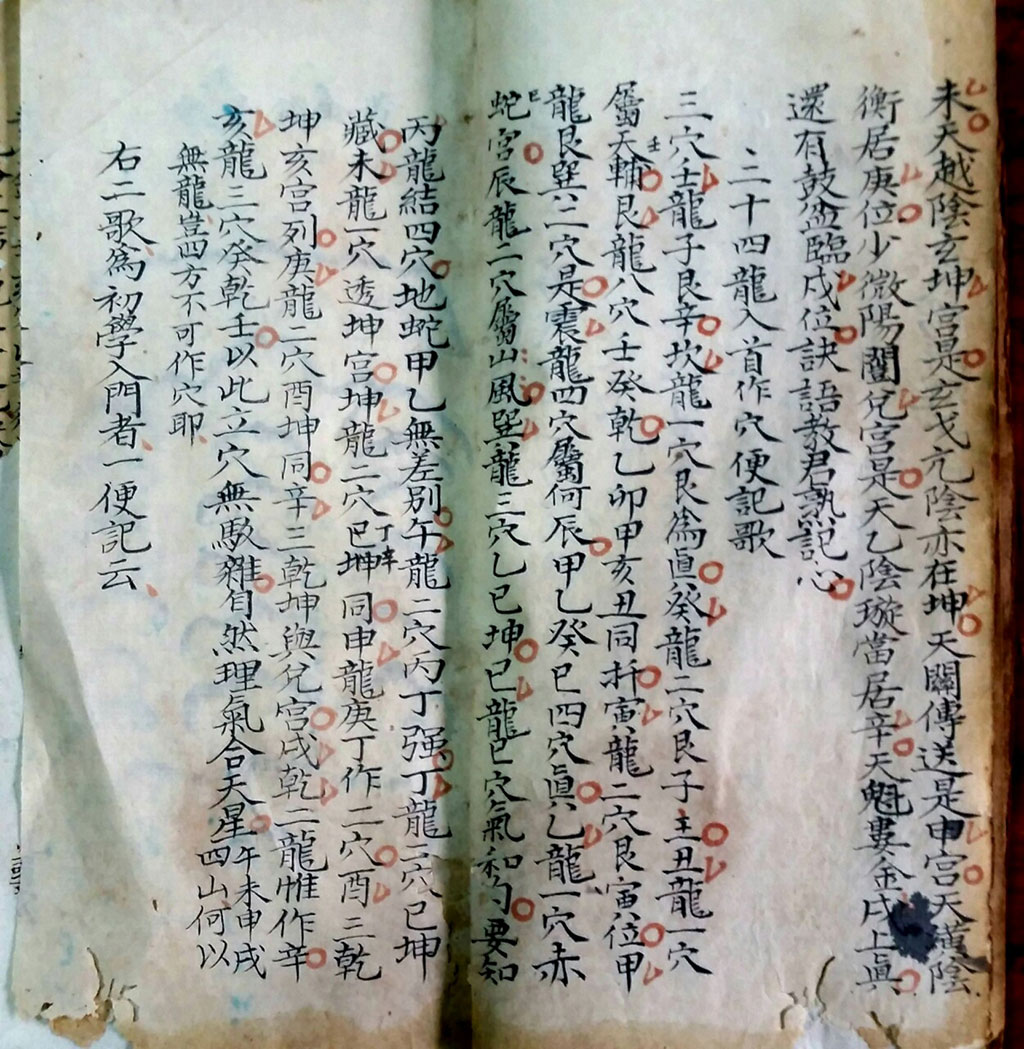 未天越陰玄坤宮是玄戈亢陰亦在坤天關傳送是申宮天潢陰
衡居庚位少微陽闔兌宮是天乙陰璇當居辛天魁婁金戌上眞
還有鼓盆臨戌位訣語教君熟記心
二十四龍入首作穴便記歌
三穴壬龍子艮辛坎龍一穴艮為眞癸龍二穴艮子壬丑龍一穴
屬天輔艮龍八穴壬癸乾乙卯甲亥丑同扦寅龍二穴艮寅位甲
龍艮巽二穴是震龍四穴屬何辰甲乙癸巳四穴眞乙龍一穴赤
蛇宮辰龍二穴屬山風巽龍三穴乙巳坤巳龍巳穴氣和勻要知
丙龍結四穴地蛇甲乙無差別午龍二穴丙丁强丁龍二穴巳坤
藏未龍一穴透坤宮坤龍二穴巳坤同申龍庚丁作二穴酉三乾
坤亥宮列庚龍二穴酉坤同辛三乾坤與兌宮戌乾二龍惟作辛
亥龍三穴癸乾壬以此立穴無駁雜自然理氣合天星午未申戌四山何以
無龍豈四方不可作穴耶
右二歌為初學入門者一便記云